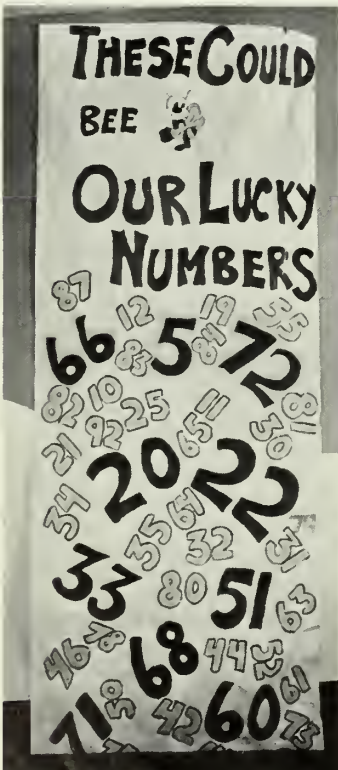 THESE COULD
BEE
OUR LUCKY
NUMBERS
87 12 19 55
66 83 5 84 72
82 10 25 11 81
21 92 65 30
20 22
34 35 64 32 31
33 80 51 63
46 78 68 44 52
71 50 42 60 61
73